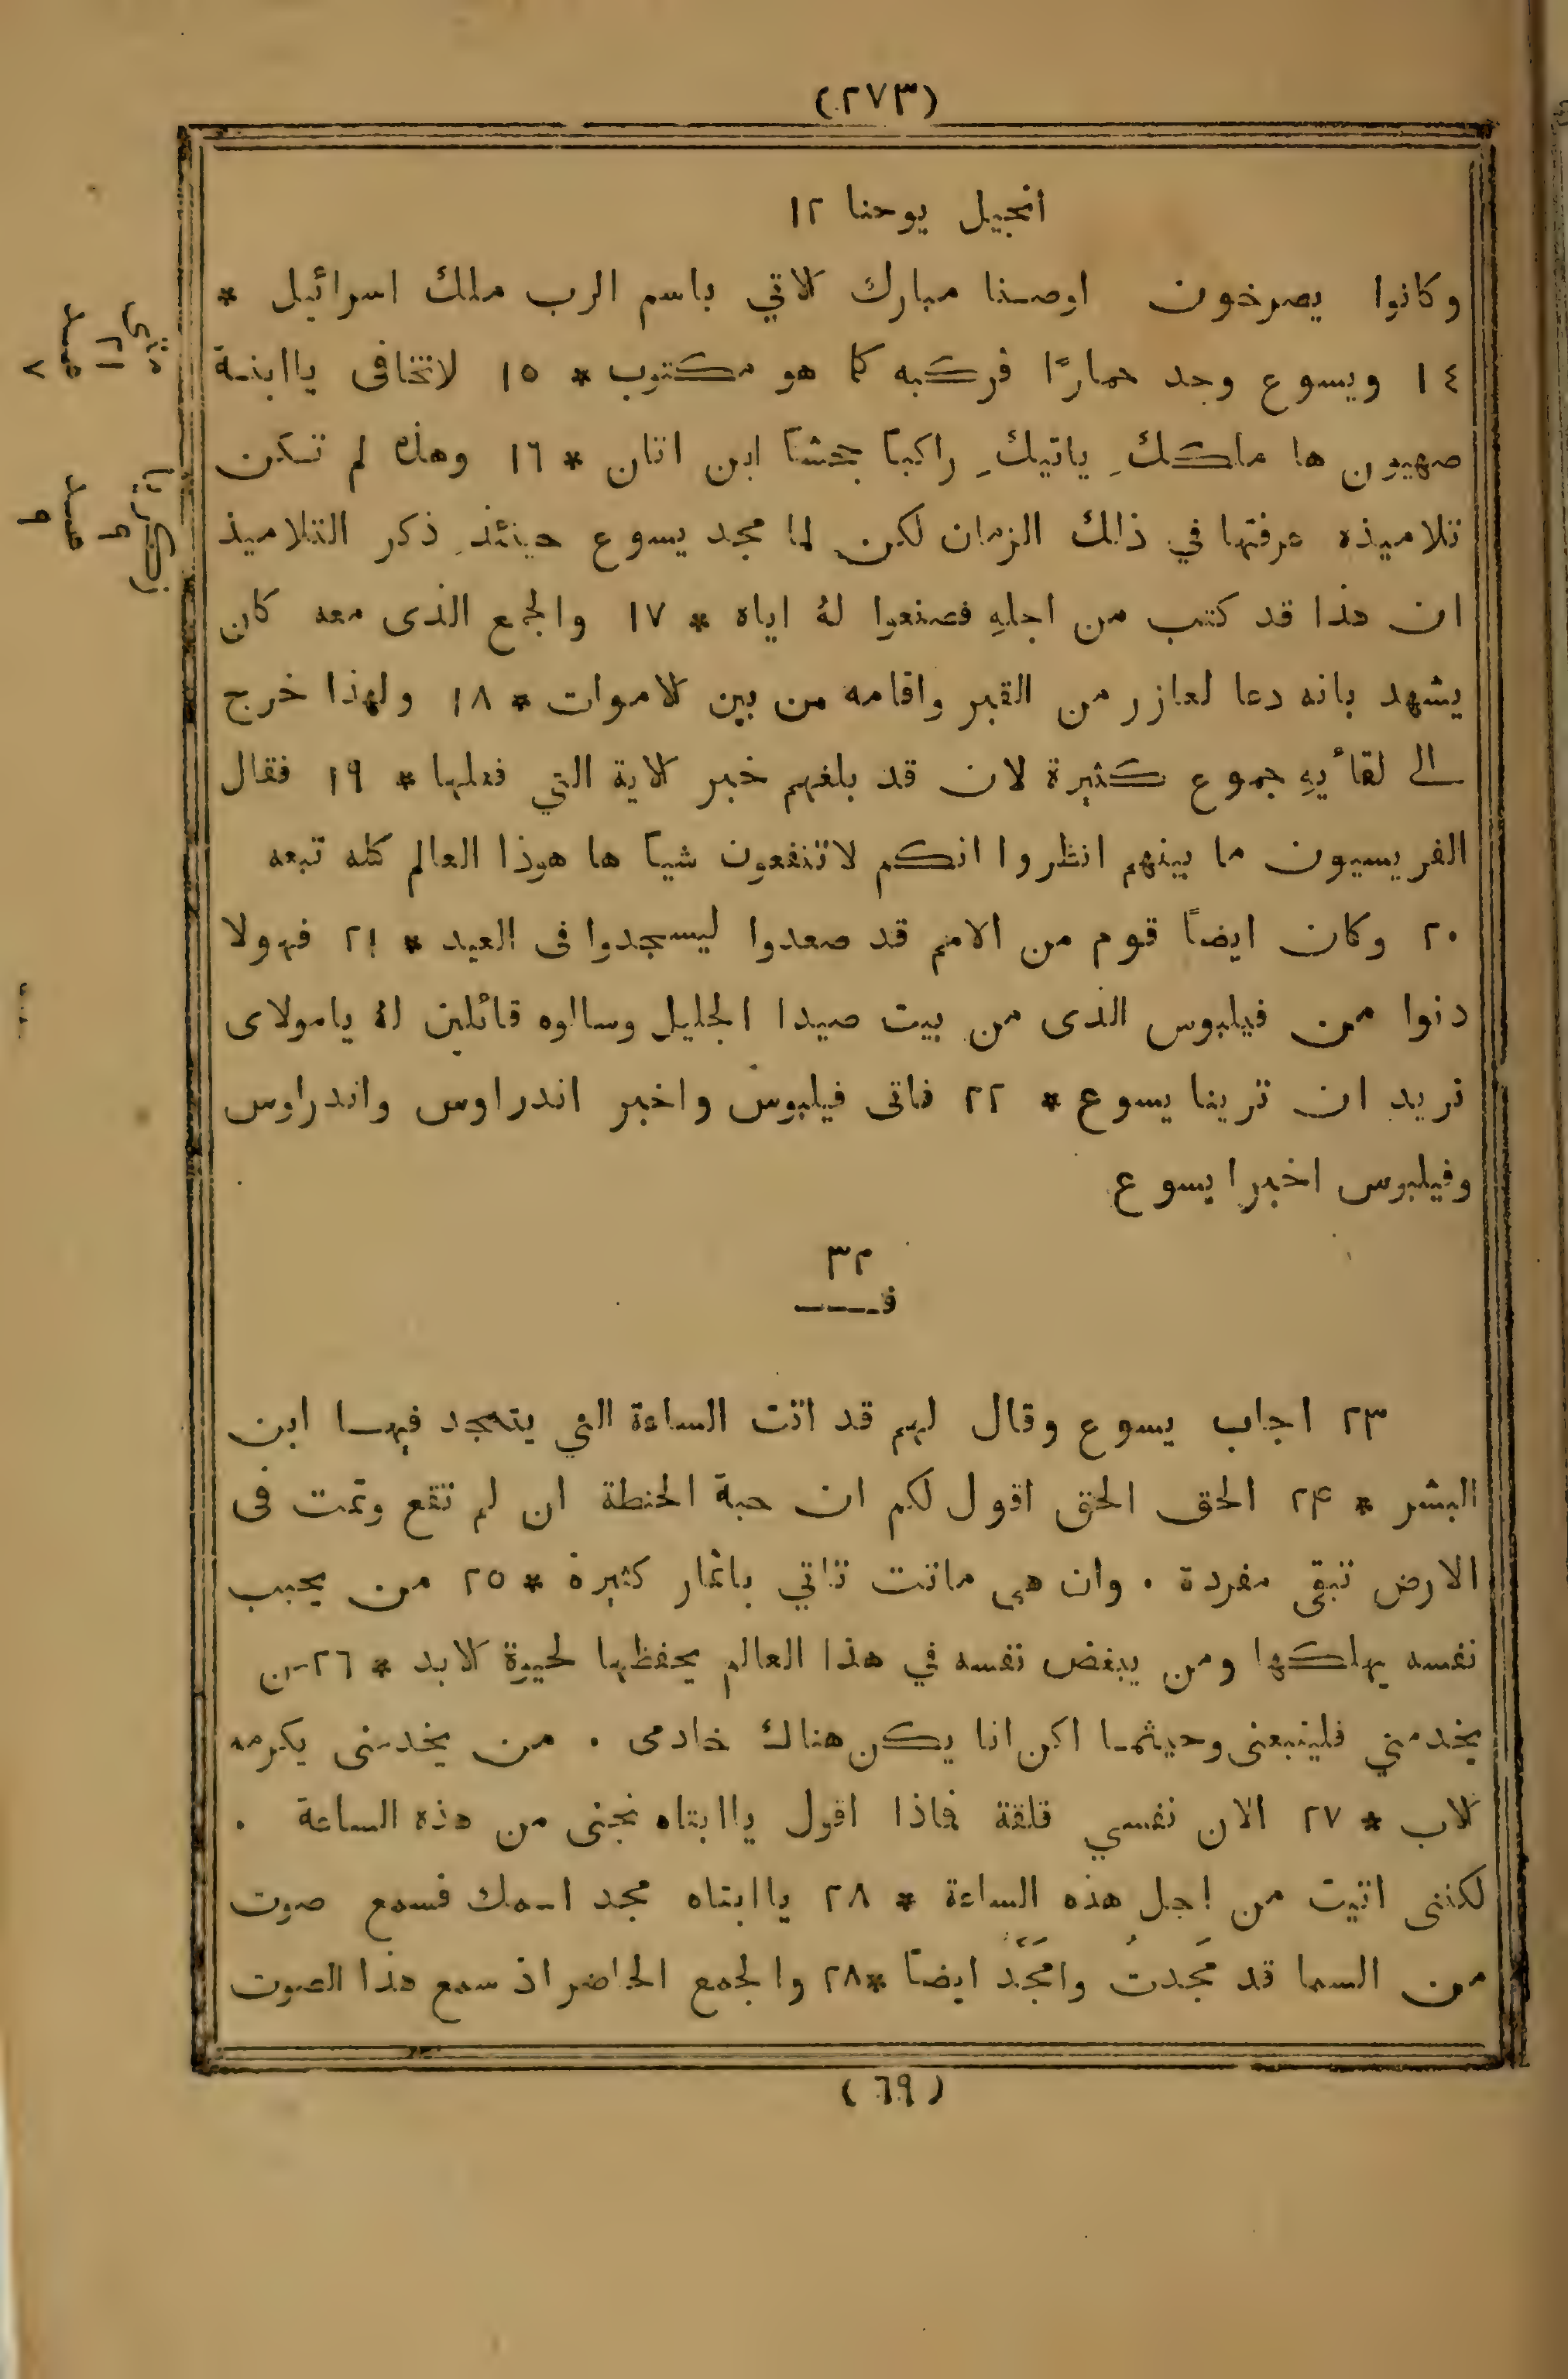 (٢٧٣)
انجيل يوحنا ١٢
وكانوا يصرخون اوصنا مبارك الاتي باسم الرب ملك اسرائيل *
١٤ ويسوع وجد حمارًا فركبه كما هو مكتوب * ١٥ لاتخافى ياابنة
صهيون ها ملككِ ياتيكِ راكبًا جحشًا ابن اتان * ١٦ وهذه لم تكن
تلاميذه عرفتها في ذلك الزمان لكن لما مجد يسوع حينئذٍ ذكر التلاميذ
ان هذا قد كتب من اجلهِ فصنعوا لهُ اياه * ١٧ والجمع الذى معه كان
يشهد بانه دعا لعازر من القبر واقامه من بين الاموات * ١٨ ولهذا خرج
الى لقاٴيهِ جموع كثيرة لان قد بلغهم خبر الاية التي فعلها * ١٩ فقال
الفريسيون ما بينهم انظروا انكم لاتنفعون شيًا ها هوذا العالم كله تبعه
٢٠ وكان ايضًا قوم من الامم قد صعدوا ليسجدوا فى العيد * ٢١ فهولا
دنوا من فيلبوس الذى من بيت صيدا الجليل وسالوه قائلين لهُ يامولاى
نريد ان ترينا يسوع * ٢٢ فاتى فيلبوس واخبر اندراوس واندراوس
وفيلبوس اخبرا يسوع
٣٢
ف
٢٣ اجاب يسوع وقال لهم قد اتت الساعة التي يتمجد فيها ابن
البشر * ٢۴ الحق الحق اقول لكم ان حبة الحنطة ان لم تقع وتمت فى
الارض تبقى مفردة . وان هى ماتت تاتي باثمار كثيرة * ٢٥ من يحبب
نفسه يهلكها ومن يبغض نفسه في هذا العالم يحفظها لحيوة الابد * ٢٦ من
يخدمني فليتبعنى وحيثما اكن انا يكن هناك خادمى . من يخدمنى يكرمه
الاب * ٢٧ الان نفسي قلقة فماذا اقول ياابتاه نجنى من هذه الساعة .
لكننى اتيت من اجل هذه الساعة * ٢٨ ياابتاه مجد اسمك فسمع صوت
من السما قد مَجدتُ وامَجّد ايضًا * ٢٨ والجمع الحاضر اذ سمع هذا الصوت
(٦٩)
متى
٢١
عدد
٧
زكريا
٩
عدد
٩